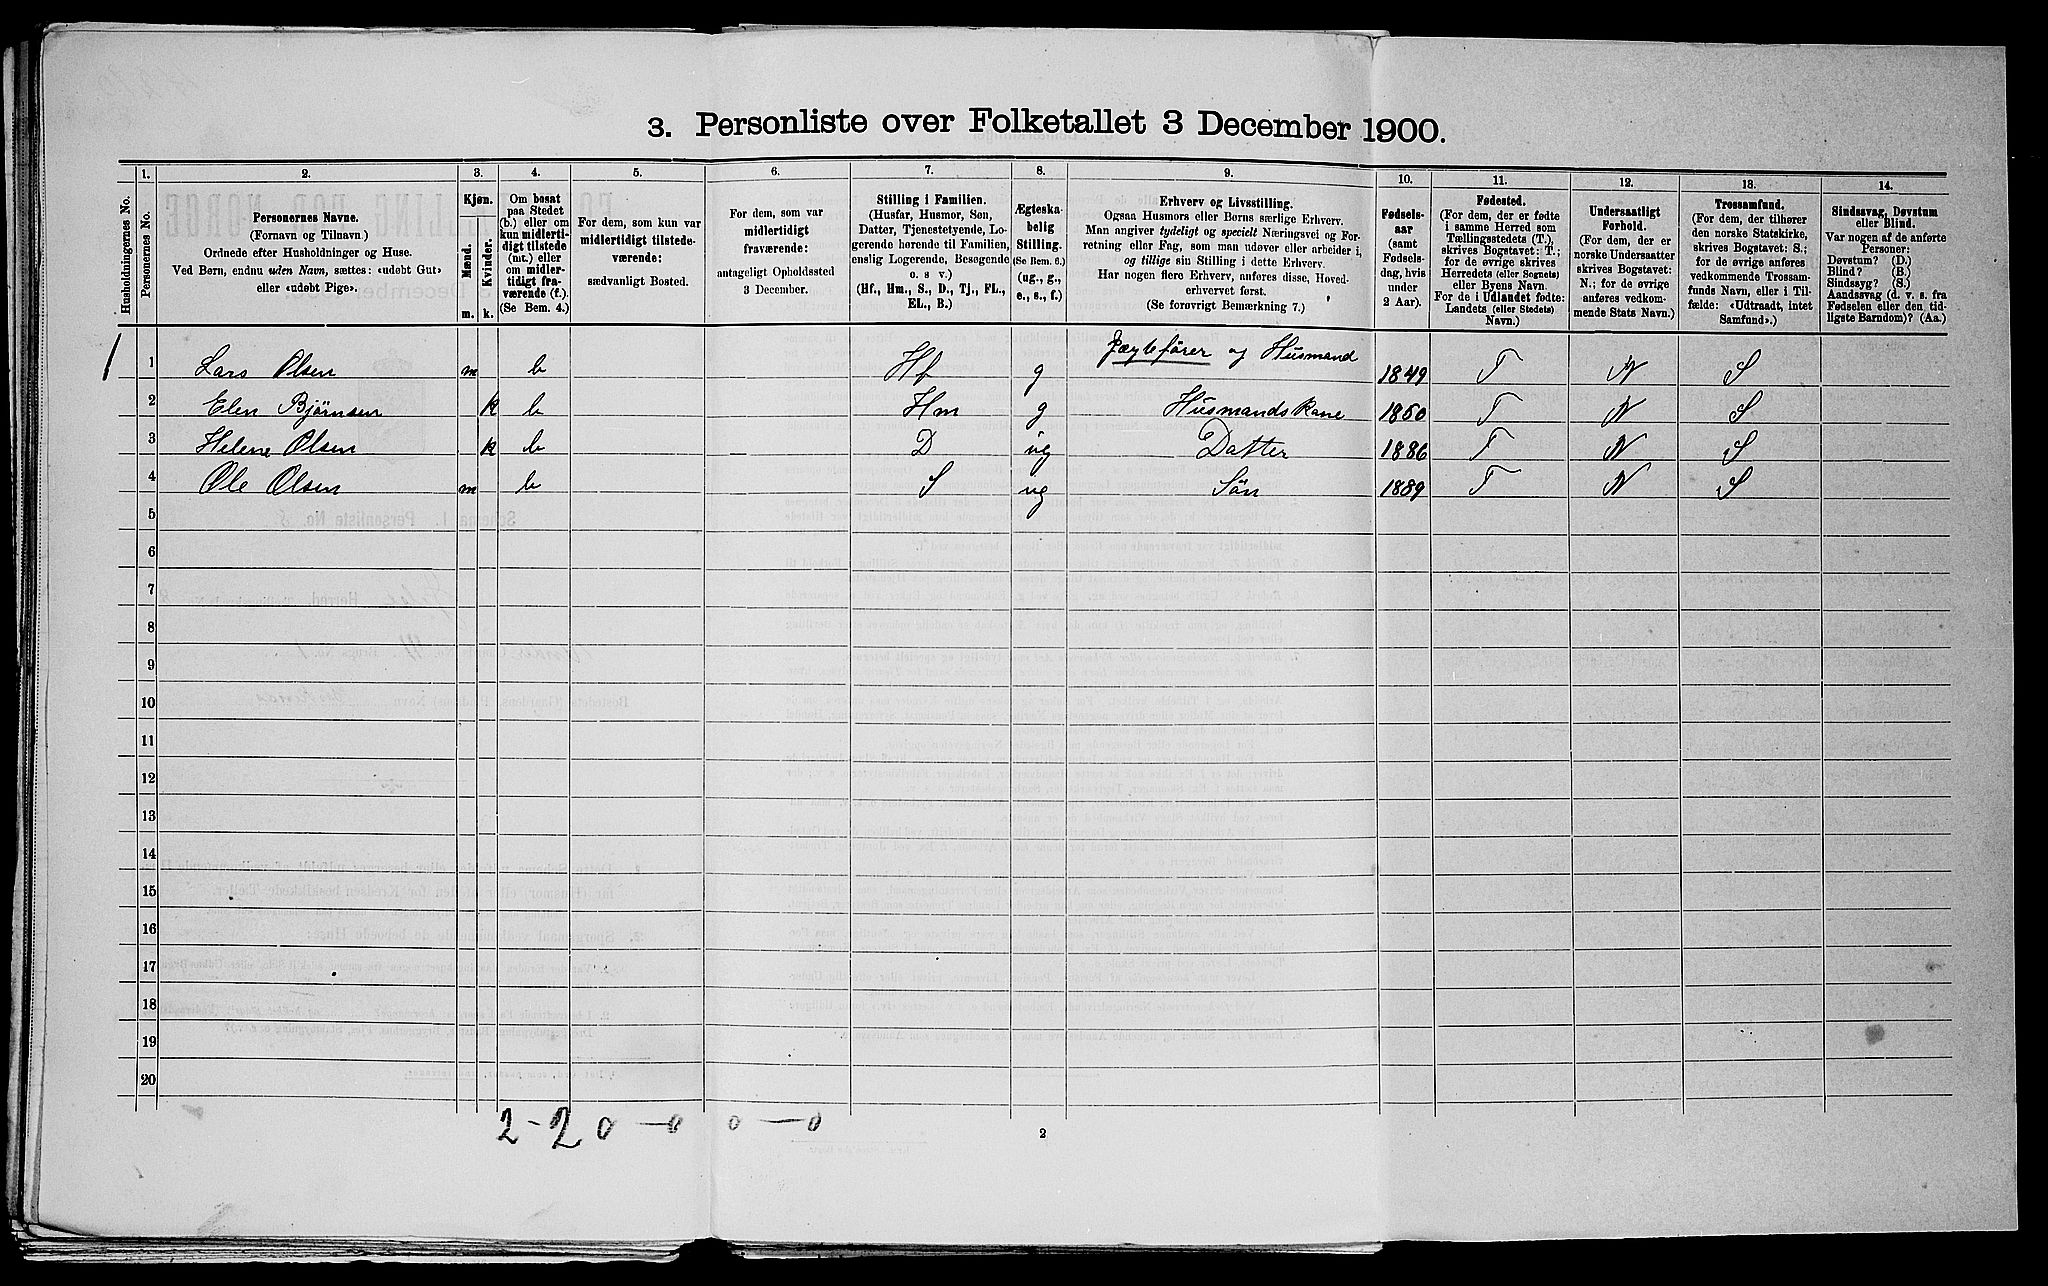 3. Personliste over Folketallet 3 December 1900.
1. 2. 3. 4. 5. 6. 7. 8. 9. 10. 11. 12. 13. 14.
Husholdningernes No.
Personernes No.
Personernes Navne.
(Fornavn og Tilnavn.)
Ordnede efter Husholdninger og Huse.
Ved Børn, endnu uden Navn, sættes: «udøbt Gut»
eller «udøbt Pige».
Kjøn.
Mænd.
Kvinder.
m. k.
Om bosat
paa Stedet
(b.) eller om
kun midlerti-
digt tilstede
(mt.) eller
om midler-
tidigt fra-
værende (f.).
(Se Bem. 4.)
For dem, som kun var
midlertidigt tilstede-
værende:
sædvanligt Bosted.
For dem, som var
midlertidigt
fraværende:
antageligt Opholdssted
3 December.
Stilling i Familien.
(Husfar, Husmor, Søn,
Datter, Tjenestetyende, Lo-
gerende hørende til Familien,
enslig Logerende, Besøgende
o. s v.)
(Hf., Hm., S., D., Tj., FL.,
EL., B.)
Ægteska-
belig
Stilling.
(Se Bem. 6.)
(ug., g.,
e., s., f.)
Erhverv og Livsstilling.
Ogsaa Husmors eller Børns særlige Erhverv.
Man angiver tydeligt og specielt Næringsvei og For-
retning eller Fag, som man udøver eller arbeider i,
og tillige sin Stilling i dette Erhverv.
Har nogen flere Erhverv, anføres disse, Hoved-
erhvervet først.
(Se forøvrigt Bemærkning 7.)
Fødsels-
aar
(samt
Fødsels-
dag, hvis
under
2 Aar).
Fødested.
(For dem, der er fødte
i samme Herred som
Tællingsstedets (T.),
skrives Bogstavet: T.;
for de øvrige skrives
Herredets (eller Sognets)
eller Byens Navn.
For de i Udlandet fødte:
Landets (eller Stedets)
Navn.)
Undersaatligt
Forhold.
(For dem, der er
norske Undersaatter
skrives Bogstavet:
N.; for de øvrige
anføres vedkom-
mende Stats Navn.)
Trossamfund.
(For dem, der tilhører
den norske Statskirke,
skrives Bogstavet: S.;
for de øvrige anføres
vedkommende Trossam-
funds Navn, eller i Til-
fælde: «Udtraadt, intet
Samfund».)
Sindssvag, Døvstum
eller Blind.
Var nogen af de anførte
Personer:
Døvstum? (D.)
Blind? (B.)
Sindssyg? (S.)
Aandssvag (d. v. s. fra
Fødselen eller den tid-
ligste Barndom)? (Aa.)
1 1 Lars Olsen m b Hf g Jægtefører og Husmand 1849 T N S
2 Elen Bjørnsen k b Hm g Husmandskone 1850 T N S
3 Helene Olsen k b D ug Datter 1886 T N S
4 Ole Olsen m b S ug Søn 1889 T N S
5
6
7
8
9
10
11
12
13
14
15
16
17
18
19
20
2-2 0 - 0 0 - 0
2